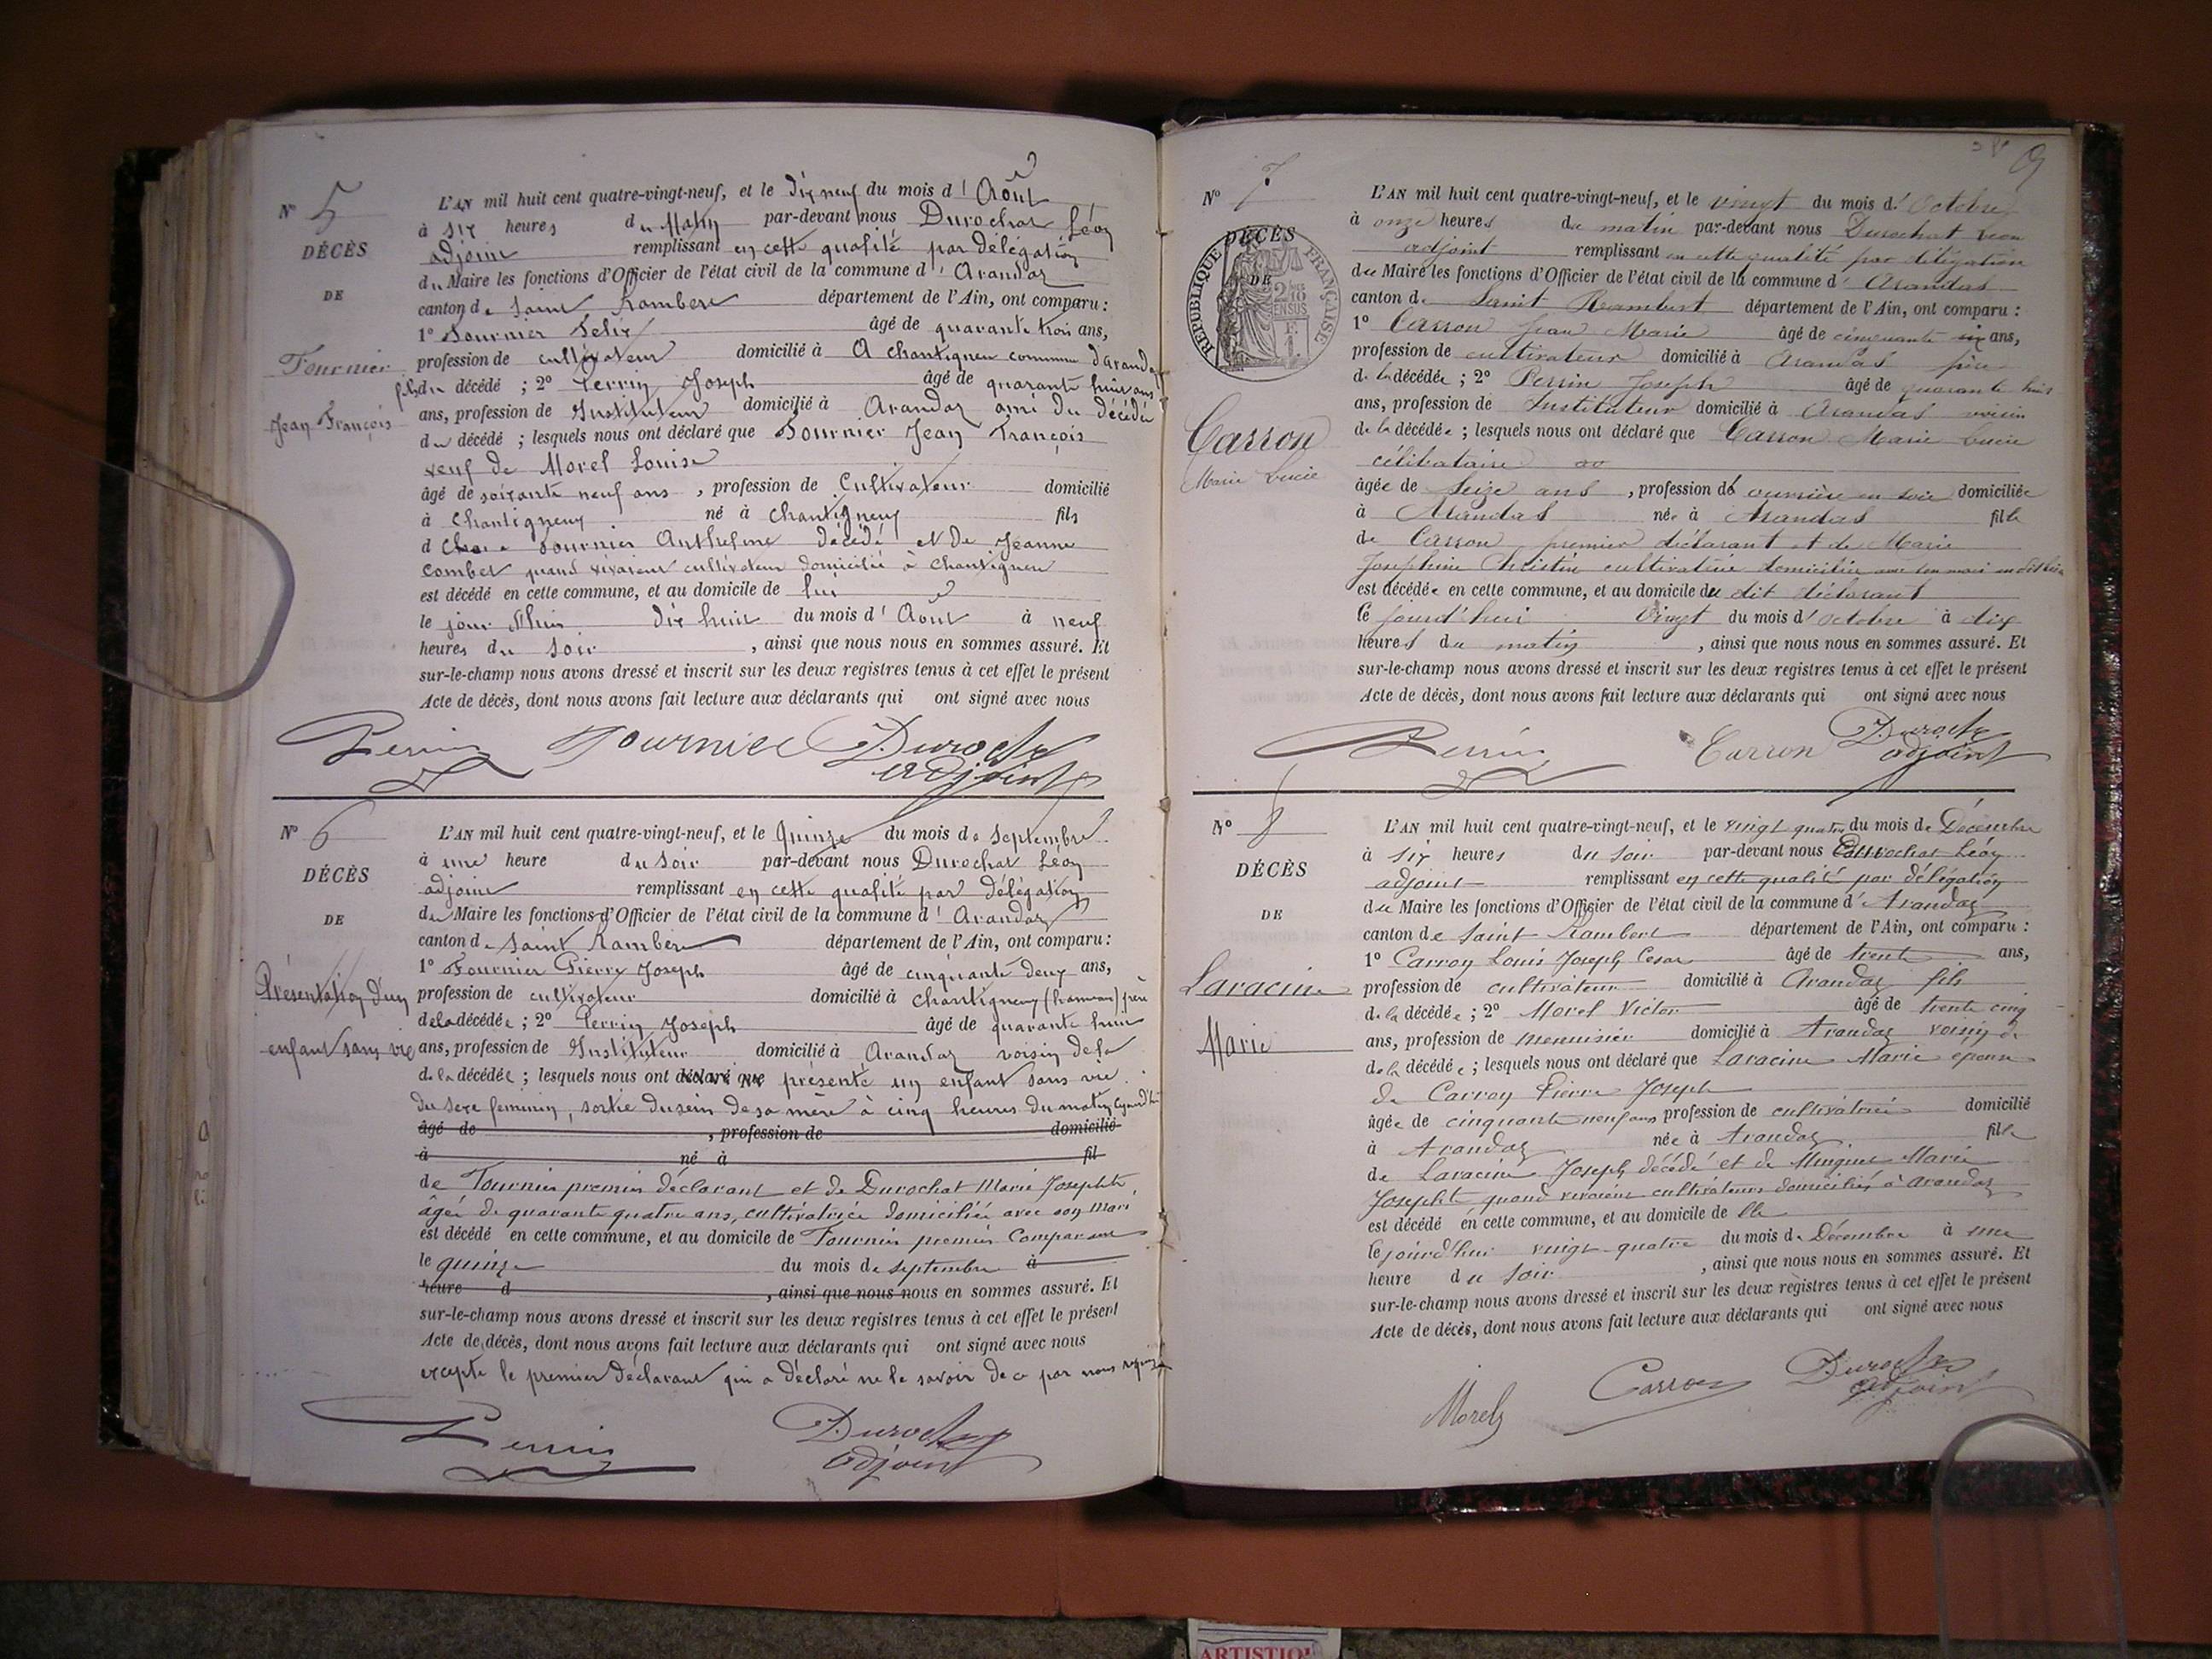 N° 5
DÉCÈS
DE
Fournier
Jean François
L'AN mil huit cent quatre-vingt-neuf, et le dix neuf du mois d' Août
à six heures du Matin par-devant nous Durochat Léon
adjoint remplissant en cette qualité par délégation
du Maire les fonctions d'Officier de l'état civil de la commune d' Arandas
canton de Saint Rambert département de l'Ain, ont comparu :
1° Fournier Félix âgé de quarante trois ans,
profession de cultivateur domicilié à A chantigneu commune d'arandas
fils du décédé ; 2° Perrin Joseph âgé de quarante huit ans
ans, profession de Instituteur domicilié à Arandas ami du décédé
du décédé ; lesquels nous ont déclaré que Fournier Jean François
veuf de Morel Louise
âgé de soixante neuf ans , profession de Cultivateur domicilié
à Chantigneux né à Chantigneux fils
d Fournier Anthelme décédé et de Jeanne
Combet quand vivaient cultivateur domicilié à Chantigneu
est décédé en cette commune, et au domicile de lui
le jour d'hier dix huit du mois d' Août à neuf
heures du soir , ainsi que nous nous en sommes assuré. Et
sur-le-champ nous avons dressé et inscrit sur les deux registres tenus à cet effet le présent
Acte de décès, dont nous avons fait lecture aux déclarants qui ont signé avec nous
Perrin Fournier Durochat
adjoint
N° 6
DÉCÈS
DE
Présentation d'un
enfant sans vie
L'AN mil huit cent quatre-vingt-neuf, et le Quinze du mois de Septembre
à une heure du soir par-devant nous Durochat Léon
adjoint remplissant en cette qualité par délégation
du Maire les fonctions d'Officier de l'état civil de la commune d' Arandas
canton de Saint Rambert département de l'Ain, ont comparu :
1° Fournier Pierre Joseph âgé de cinquante deux ans,
profession de cultivateur domicilié à Chantigneux (hameau) père
de la décédée ; 2° Perrin Joseph âgé de quarante huit
ans, profession de Instituteur domicilié à Arandas voisin de la
de la décédée ; lesquels nous ont déclaré que présenté un enfant sans vie
du sexe feminin, sortie du sein de sa mère à cinq heures du matin
âgé de , profession de domicilié
à né à fil
de Fournier premier déclarant et de Durochat Marie Josephte
âgée de quarante quatre ans, cultivatrice domiciliée avec son mari
est décédé en cette commune, et au domicile de Fournier premier Comparant
le quinze du mois de septembre à
heure d , ainsi que nous nous en sommes assuré. Et
sur-le-champ nous avons dressé et inscrit sur les deux registres tenus à cet effet le présent
Acte de décès, dont nous avons fait lecture aux déclarants qui ont signé avec nous
excepté le premier déclarant qui a déclaré ne le savoir de ce par nous requis
Perrin Durochat
adjoint
9
N° 7
DÉCÈS
DE
RÉPUBLIQUE FRANÇAISE
Carron
Marie Lucie
L'AN mil huit cent quatre-vingt-neuf, et le vingt du mois d' Octobre
à onze heures du matin par-devant nous Durochat Léon
adjoint remplissant en cette qualité par délégation
du Maire les fonctions d'Officier de l'état civil de la commune d' Arandas
canton de Saint Rambert département de l'Ain, ont comparu :
1° Carron Jean Marie âgé de cinquante ans,
profession de cultivateur domicilié à Arandas père
de la décédée ; 2° Perrin Joseph âgé de quarante huit
ans, profession de Instituteur domicilié à Arandas voisin
de la décédée ; lesquels nous ont déclaré que Carron Marie Lucie
célibataire
âgée de Seize ans , profession d' ouvrière en soie domiciliée
à Arandas née à Arandas fille
de Carron premier déclarant et de Marie
Josephine Christin cultivatrice domiciliée avec son mari
est décédée en cette commune, et au domicile du dit déclarant
le jourd'hui vingt du mois d' octobre à dix
heures du matin , ainsi que nous nous en sommes assuré. Et
sur-le-champ nous avons dressé et inscrit sur les deux registres tenus à cet effet le présent
Acte de décès, dont nous avons fait lecture aux déclarants qui ont signé avec nous
Perrin Carron Durochat
adjoint
N° 8
DÉCÈS
DE
Laracine
Marie
L'AN mil huit cent quatre-vingt-neuf, et le vingt quatre du mois de Décembre
à six heures du soir par-devant nous Durochat Léon
adjoint remplissant en cette qualité par délégation
du Maire les fonctions d'Officier de l'état civil de la commune d' Arandas
canton de Saint Rambert département de l'Ain, ont comparu :
1° Carron Louis Joseph Cesar âgé de trente ans,
profession de cultivateur domicilié à Arandas fils
de la décédée ; 2° Morel Victor âgé de trente cinq
ans, profession de menuisier domicilié à Arandas voisin de
de la décédée ; lesquels nous ont déclaré que Laracine Marie épouse
de Carron Pierre Joseph
âgée de cinquante neuf ans profession de cultivatrice domicilié
à Arandas née à Arandas fille
de Laracine Joseph décédé et de Marie
Josephte quand vivaient cultivateurs domiciliés à Arandas
est décédé en cette commune, et au domicile de Elle
le jourd'hui vingt quatre du mois de Décembre à une
heure du soir , ainsi que nous nous en sommes assuré. Et
sur-le-champ nous avons dressé et inscrit sur les deux registres tenus à cet effet le présent
Acte de décès, dont nous avons fait lecture aux déclarants qui ont signé avec nous
Morel Carron Durochat
adjoint